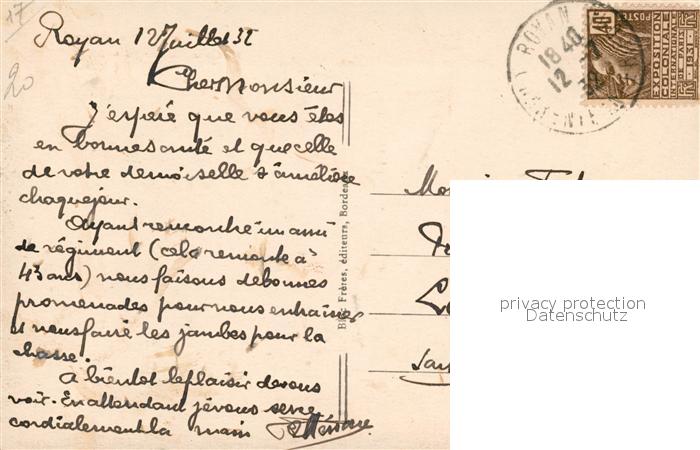 17
20
Royan 12 Juillet 32
Cher Monsieur
J'espère que vous êtes
en bonne santé et que celle
de votre demoiselle s'améliore
chaque jour.
Ayant remontré un ami
de régiment (cela remonte à
43 ans) nous faisons de bonnes
promenades pour nous entrainer
et nous faire les jambes pour la
chasse.
A bientot le plaisir de vous
voir. En attendant je vous serre
cordialement la main
Frères, éditeurs, Bordeaux
ROYAN
18 40
12 -7
32
40c
POSTES
EXPOSITION
COLONIALE
INTERNATIONALE
DE PARIS
1931
privacy protection
Datenschutz